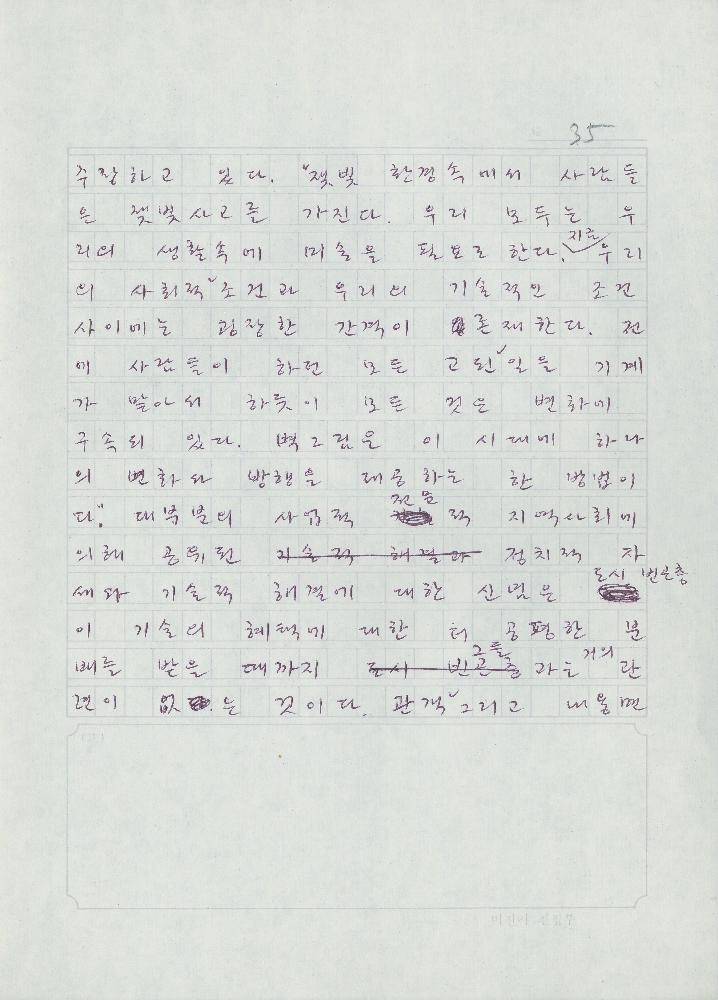 35
주장하고 있다. "잿빛 환경속에서 사람들
은 잿빛사고를 가진다. 우리 모두는 우
리의 생활속에 미술을 필요로 한다. 지금 우리
의 사회적 조건과 우리의 기술적인 조건
사이에는 굉장한 간격이 존재한다. 전
에 사람들이 하던 모든 고된 일을 기계
가 맡아서 하듯이 모든 것은 변화에
구속되 있다. 벽그림은 이 시대에 하나
의 변화와 방행을 제공하는 한 방법이
다". 대부분의 사업적 전문적 지역사회에
의해 공유된 기술적 해결과 정치적 자
세과 기술적 해결에 대한 신념은 도시 빈곤층
이 기술의 혜택에 대한 더 공평한 분
배를 받을 때까지 도시 빈곤층 그들과는 거의 관
련이 없은 것이다. 관객 그리고 내용면